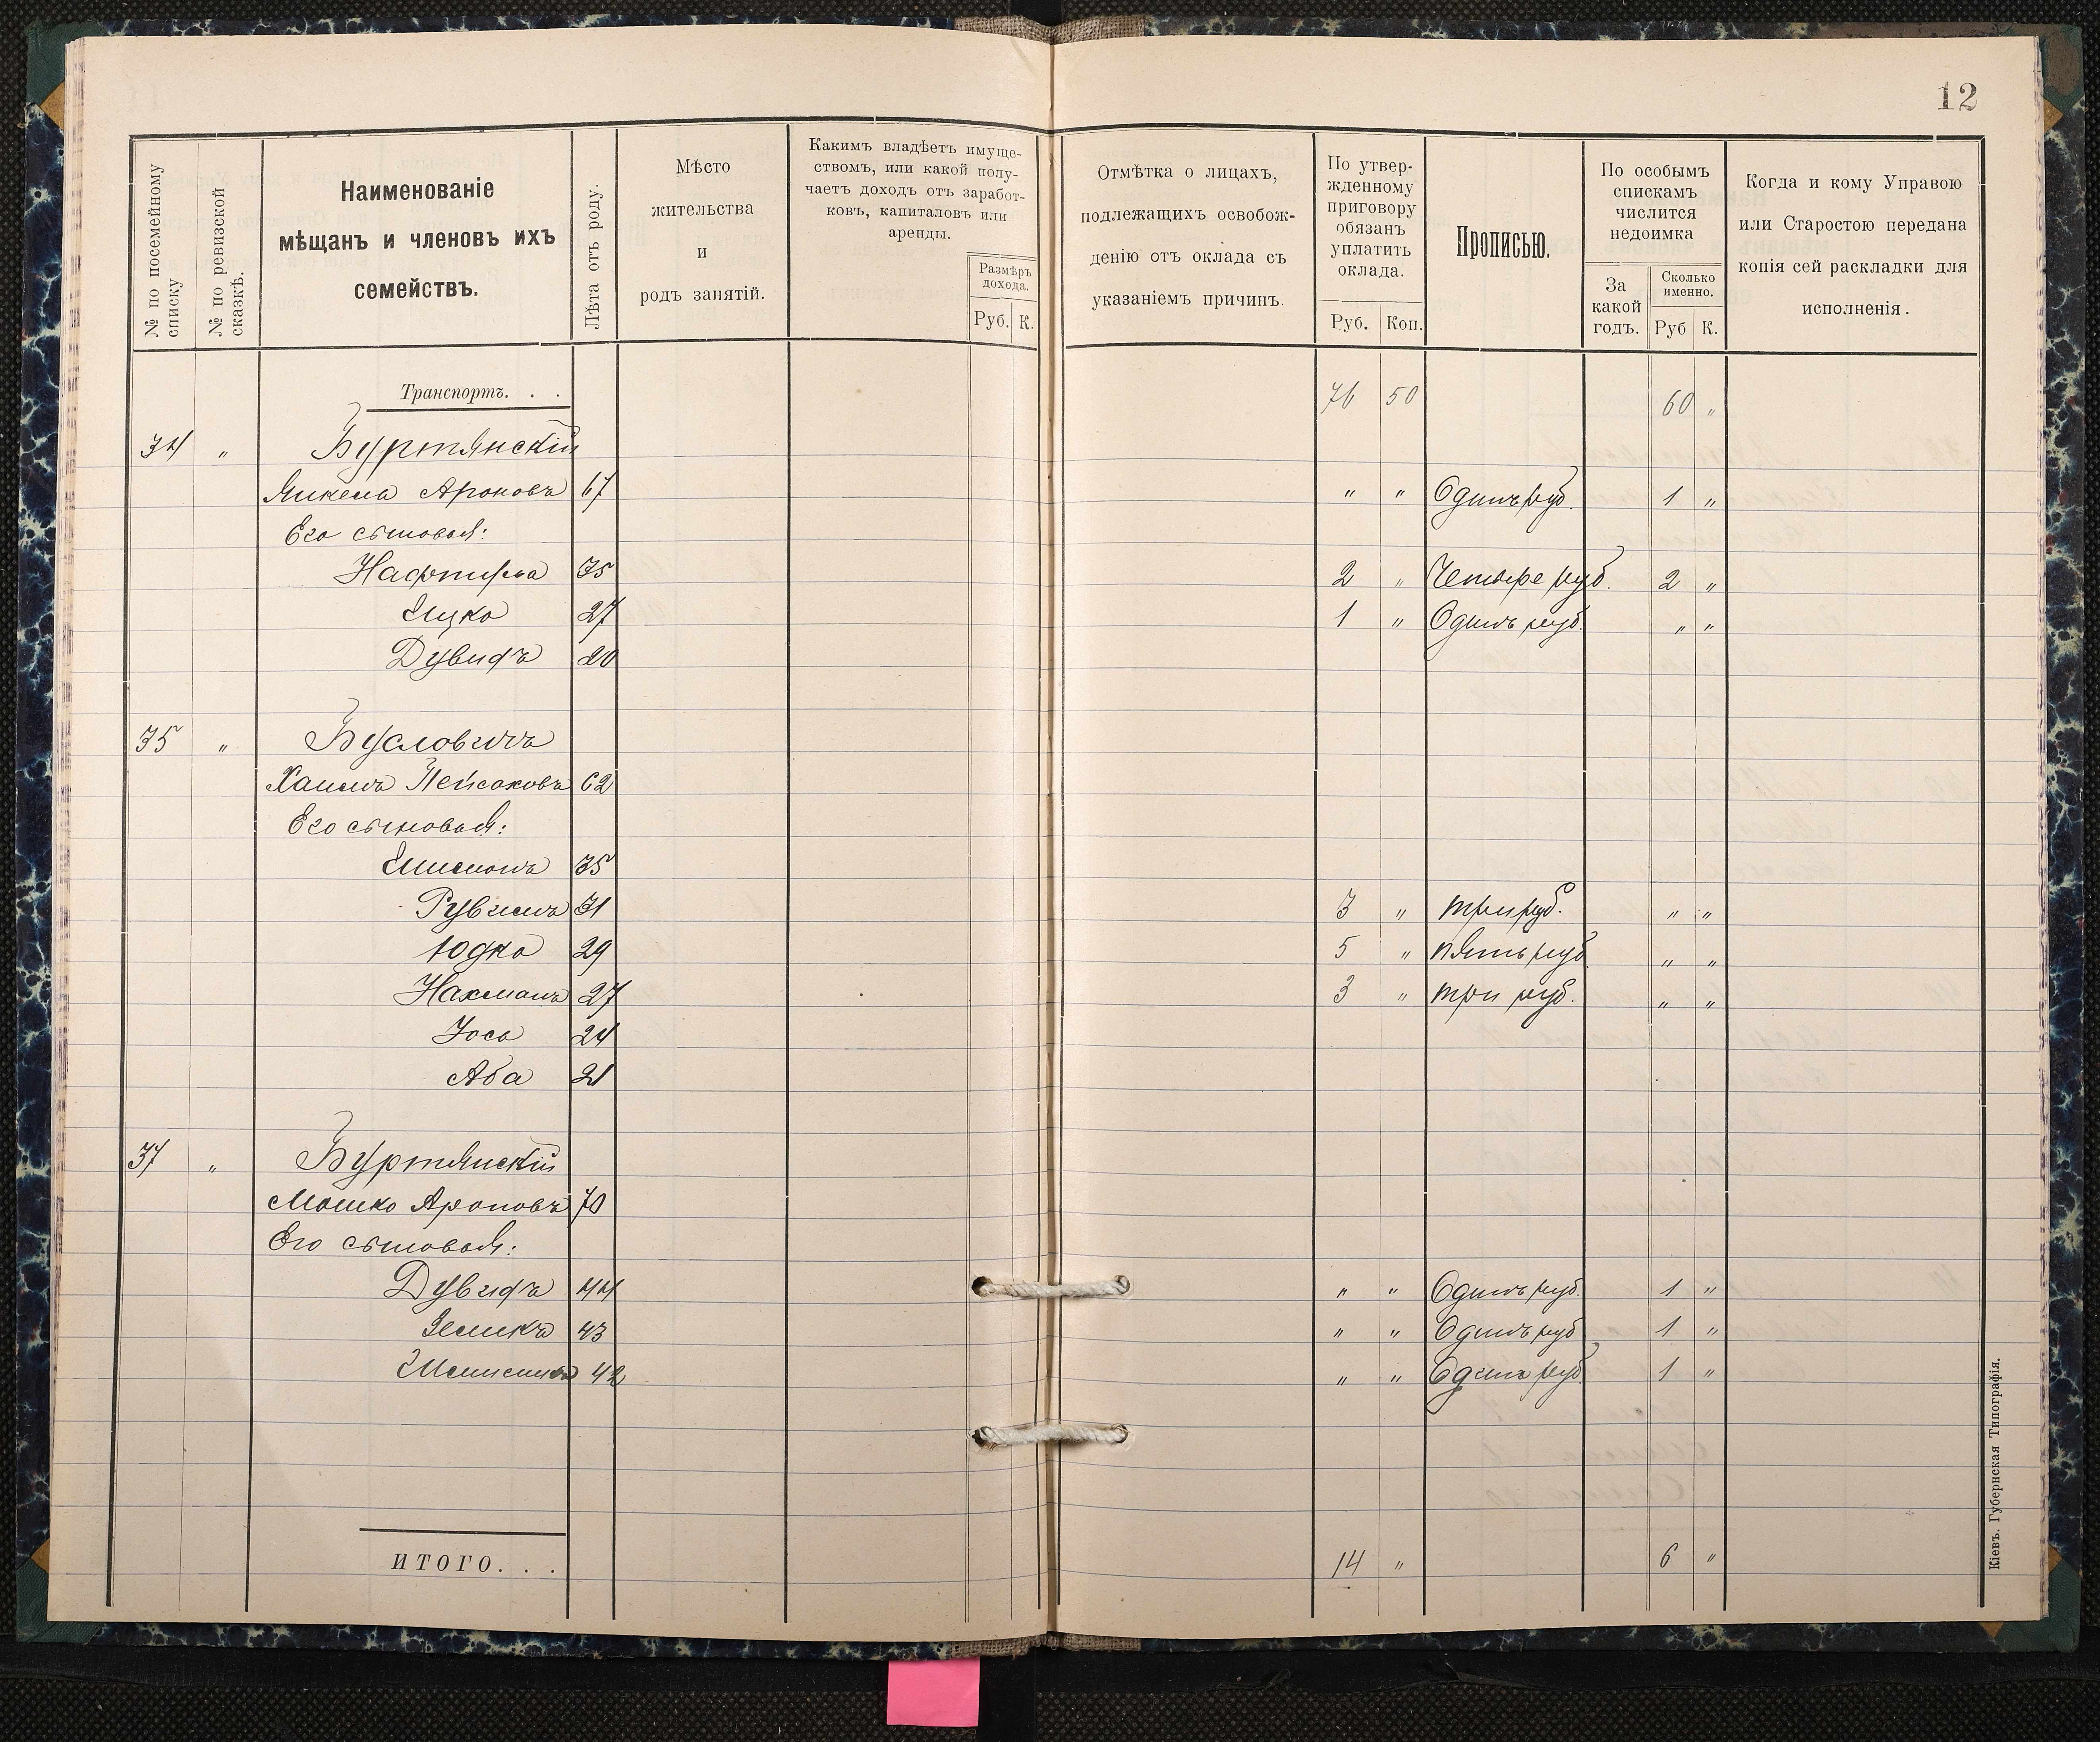 12
№ по посемейному списку
№ по ревизской сказкѣ.
Наименованіе
мѣщанъ и членовъ ихъ
семействъ.
Лѣта отъ роду.
Мѣсто
жительства
и
родъ занятій.
Какимъ владѣетъ имуще-
ствомъ, или какой полу-
чаетъ доходъ отъ заработ-
ковъ, капиталовъ или
аренды.
Размѣръ
дохода.
Руб. К.
Отмѣтка о лицахъ,
подлежащихъ освобож-
денію отъ оклада съ
указаніемъ причинъ.
По утвер-
жденному
приговору
обязанъ
уплатить
оклада.
Руб. Коп.
Прописью.
По особымъ
спискамъ
числится
недоимка
За
какой
годъ.
Сколько
именно.
Руб К.
Когда и кому Управою
или Старостою передана
копія сей раскладки для
исполненія.
Транспортъ. . . 76 50 60 „
34 „ Буртянскій
Ароновъ 67 „ „ Одинъ руб. 1 „
Его сыновья:
35 2 „ Четыре руб. 2 „
Ицко 27 1 „ Одинъ руб. „ „
Дувидъ 20
35 „ Бусловичъ
Хаимъ Пейсаховъ 62
Его сыновья:
Шимонъ 35
Рувимъ 31 3 „ три руб. „ „
Юдко 29 5 „ пять руб. „ „
Нахманъ 27 3 „ три руб. „ „
Іось 24
Аба 21
37 „ Буртянскій
Мошко Ароновъ 70
Его сыновья:
Дувидъ 44 „ „ Одинъ руб. 1 „
Зеликъ 43 „ „ Одинъ руб 1 „
42 „ „ Одинъ руб. 1 „
ИТОГО. . . 14 „ 6 „
Кіевъ. Губернская Типографія.